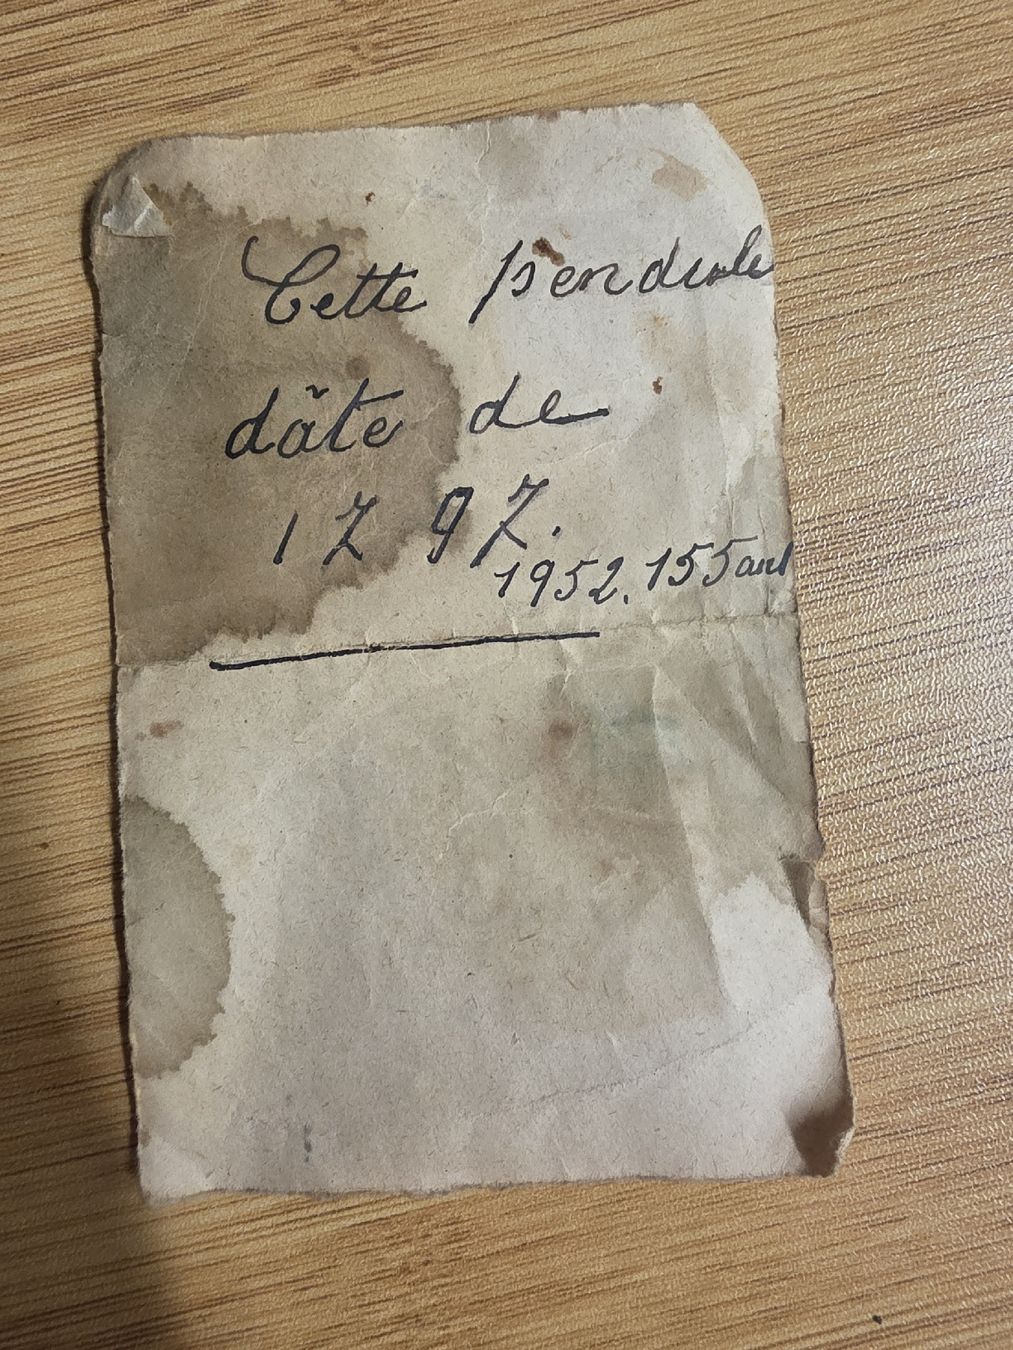 Cette pendule
dâte de
1797.
1952. 155 ans